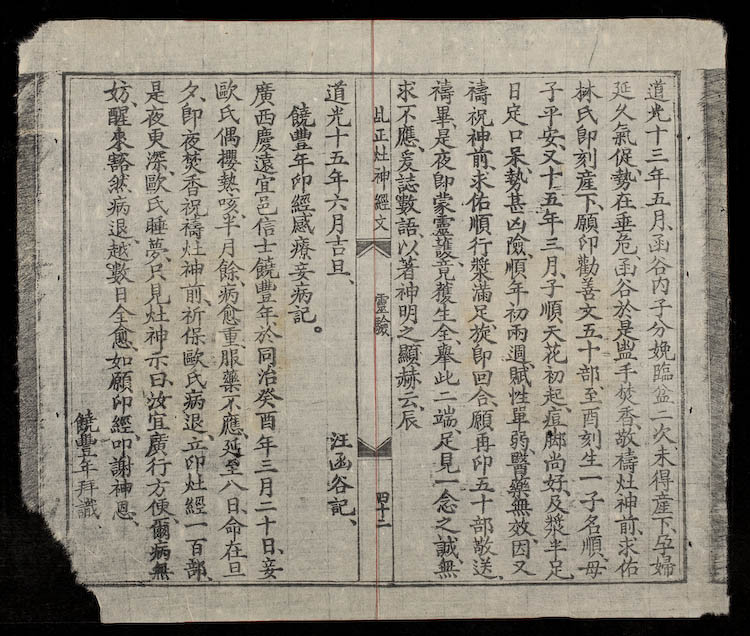 道光十三年五月、函谷內子分娩臨盆二次、未得産下、孕婦
延久氣促、勢在垂危、函谷於是盥手焚香、敬禱灶神前、求佑
林氏即刻産下、願印勸善文五十部、至酉刻生一子名順、母
子平安、又十五年三月、子順天花初起、痘脚尚好、及漿半足
日定口呆、勢甚凶險、順年初兩週、賦性單弱、醫藥無效、因又
禱祝神前、求佑順行漿滿足、旋即回合、願再印五十部敬送、
禱畢、是夜即蒙靈護、竟獲生全、舉此二端、足見一念之誠、無
求不應、爰誌數語、以著神明之顯赫云、辰
乩正灶神經文 靈驗 四十二
道光十五年六月吉旦、 汪函谷記、
饒豐年印經感療妾病記。
廣西慶遠宜邑信士饒豐年、於同治癸酉年三月二十日、妾
歐氏偶櫻熱咳、半月餘、病愈重、服藥不應、延至八日、命在旦
夕、即夜焚香祝禱灶神前、祈保歐氏病退、立印灶經一百部、
是夜更深、歐氏睡夢、只見灶神示曰、汝宜廣行方便、爾病無
妨、醒來豁然病退、越數日全愈、如願印經、叩謝神恩、
饒豐年拜識、